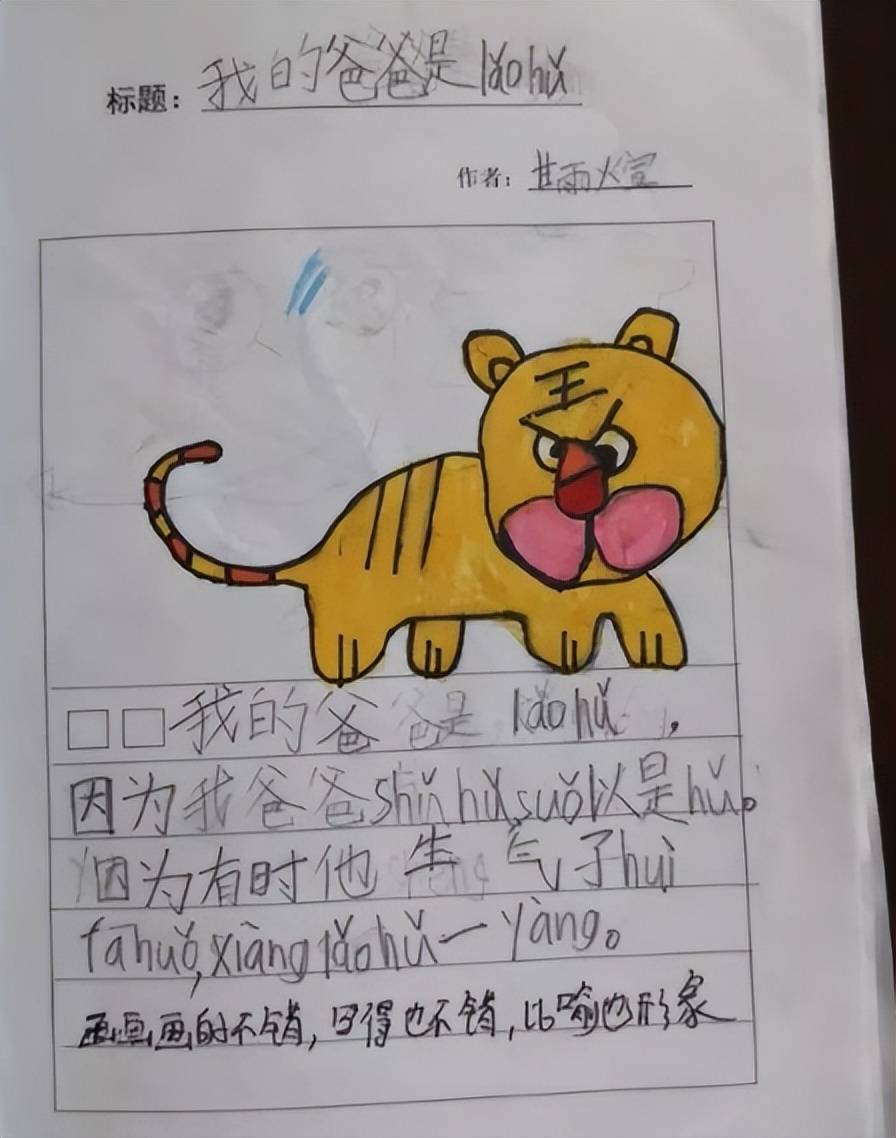 标题：我的爸爸是lǎohǔ
作者：甘雨煊
王
我的爸爸是lǎohǔ，
因为我爸爸shǔhǔ,suǒ以是hǔ。
因为有时他生气了huì
fāhuǒ,xiàng lǎohǔ一yàng。
画画画的不错,写得也不错,比喻也形象